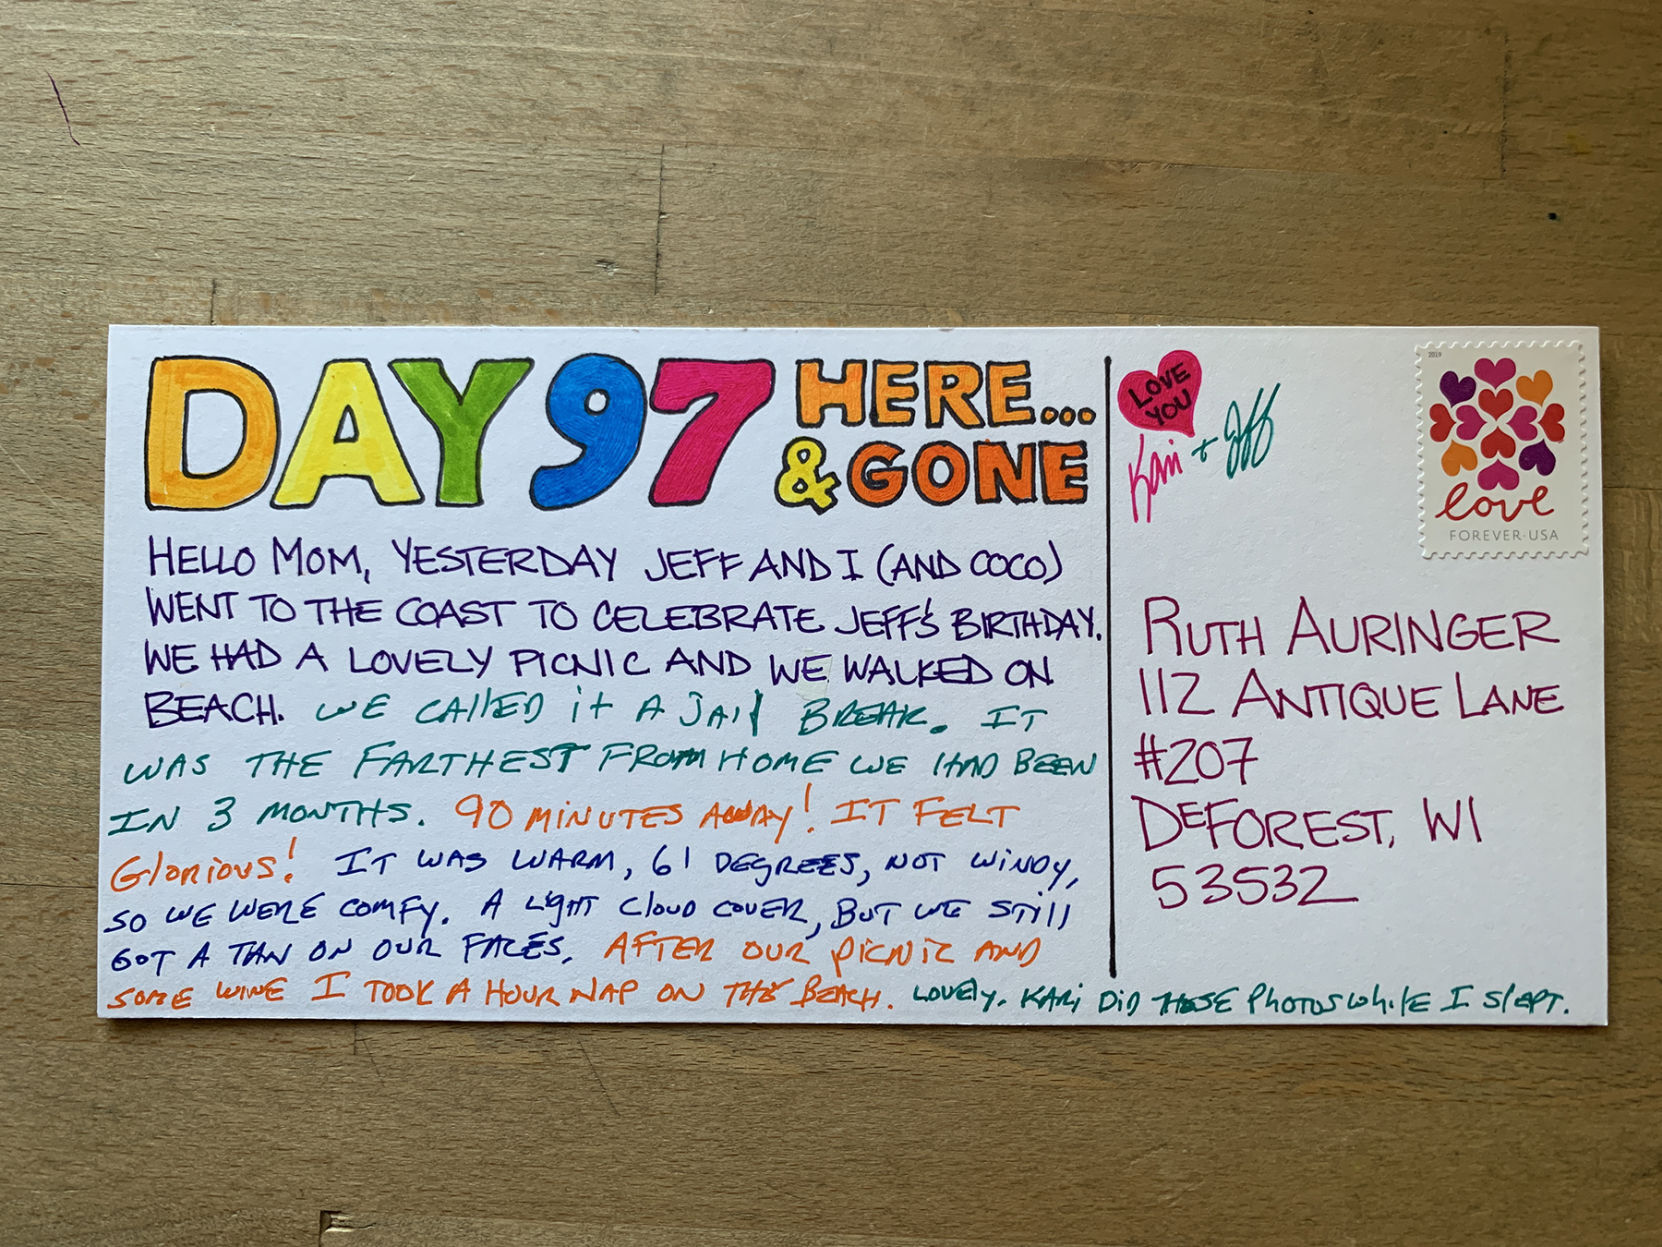 DAY 97 HERE...
& GONE
HELLO MOM, YESTERDAY JEFF AND I (AND COCO)
WENT TO THE COAST TO CELEBRATE JEFF'S BIRTHDAY.
WE HAD A LOVELY PICNIC AND WE WALKED ON
BEACH. WE CAllED it A JAil BREAK. IT
WAS THE FARTHEST FROM HOME WE HAD BEEN
IN 3 MONTHS. 90 MINUTES AWAY! IT FELT
GlORiOUS! IT WAS WARM, 61 DEGREES, NOT WINDY,
SO WE WERE COMFY. A LigHT ClOUD COVER, BUT WE STill
GOT A TAN ON OUR FACES. AFTER OUR PiCNiC AND
SOME WINE I TOOK A HOUR NAP ON THE BEACH. LOVELY. KARi DiD THESE PhOTOS WhilE I SlEPT.
LOVE
YOU
Kari + Jeff
2019
love
FOREVER·USA
RUTH AURINGER
112 ANTIQUE LANE
#207
DEFOREST, WI
53532